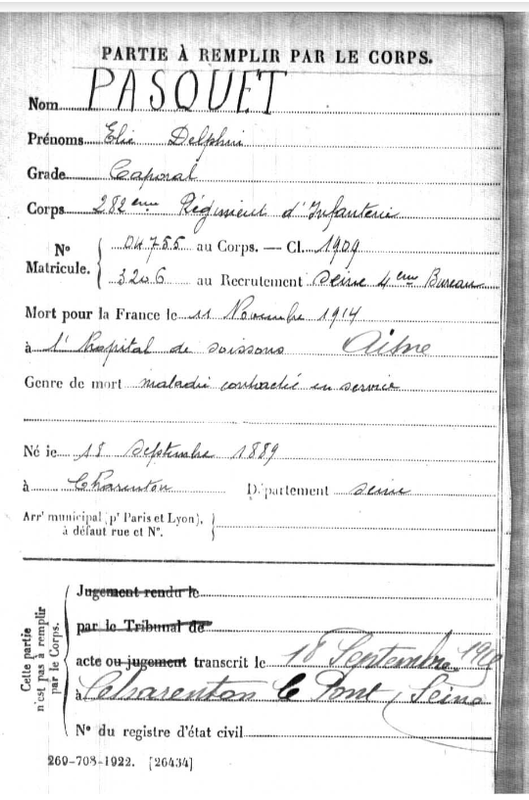 PARTIE À REMPLIR PAR LE CORPS.
Nom PASQUET
Prénoms Elie Delphin
Grade Caporal
Corps 282ème Régiment d'Infanterie
Nº Matricule. 04755 au Corps. — Cl. 1909
3206 au Recrutement Seine 4eme Bureau
Mort pour la France le 11 Novembre 1914
à l'hopital de Soissons Aisne
Genre de mort maladie contractée en service
Né le 13 Septembre 1889
à Charenton Département Seine
Arrᵗ municipal (pʳ Paris et Lyon),
à défaut rue et Nº.
Cette partie n'est pas à remplir par le Corps.
Jugement rendu le
par le Tribunal de
acte ou jugement transcrit le 18 Septembre
à Charenton le Pont, Seine
Nº du registre d'état civil
269-708-1922. [26434]